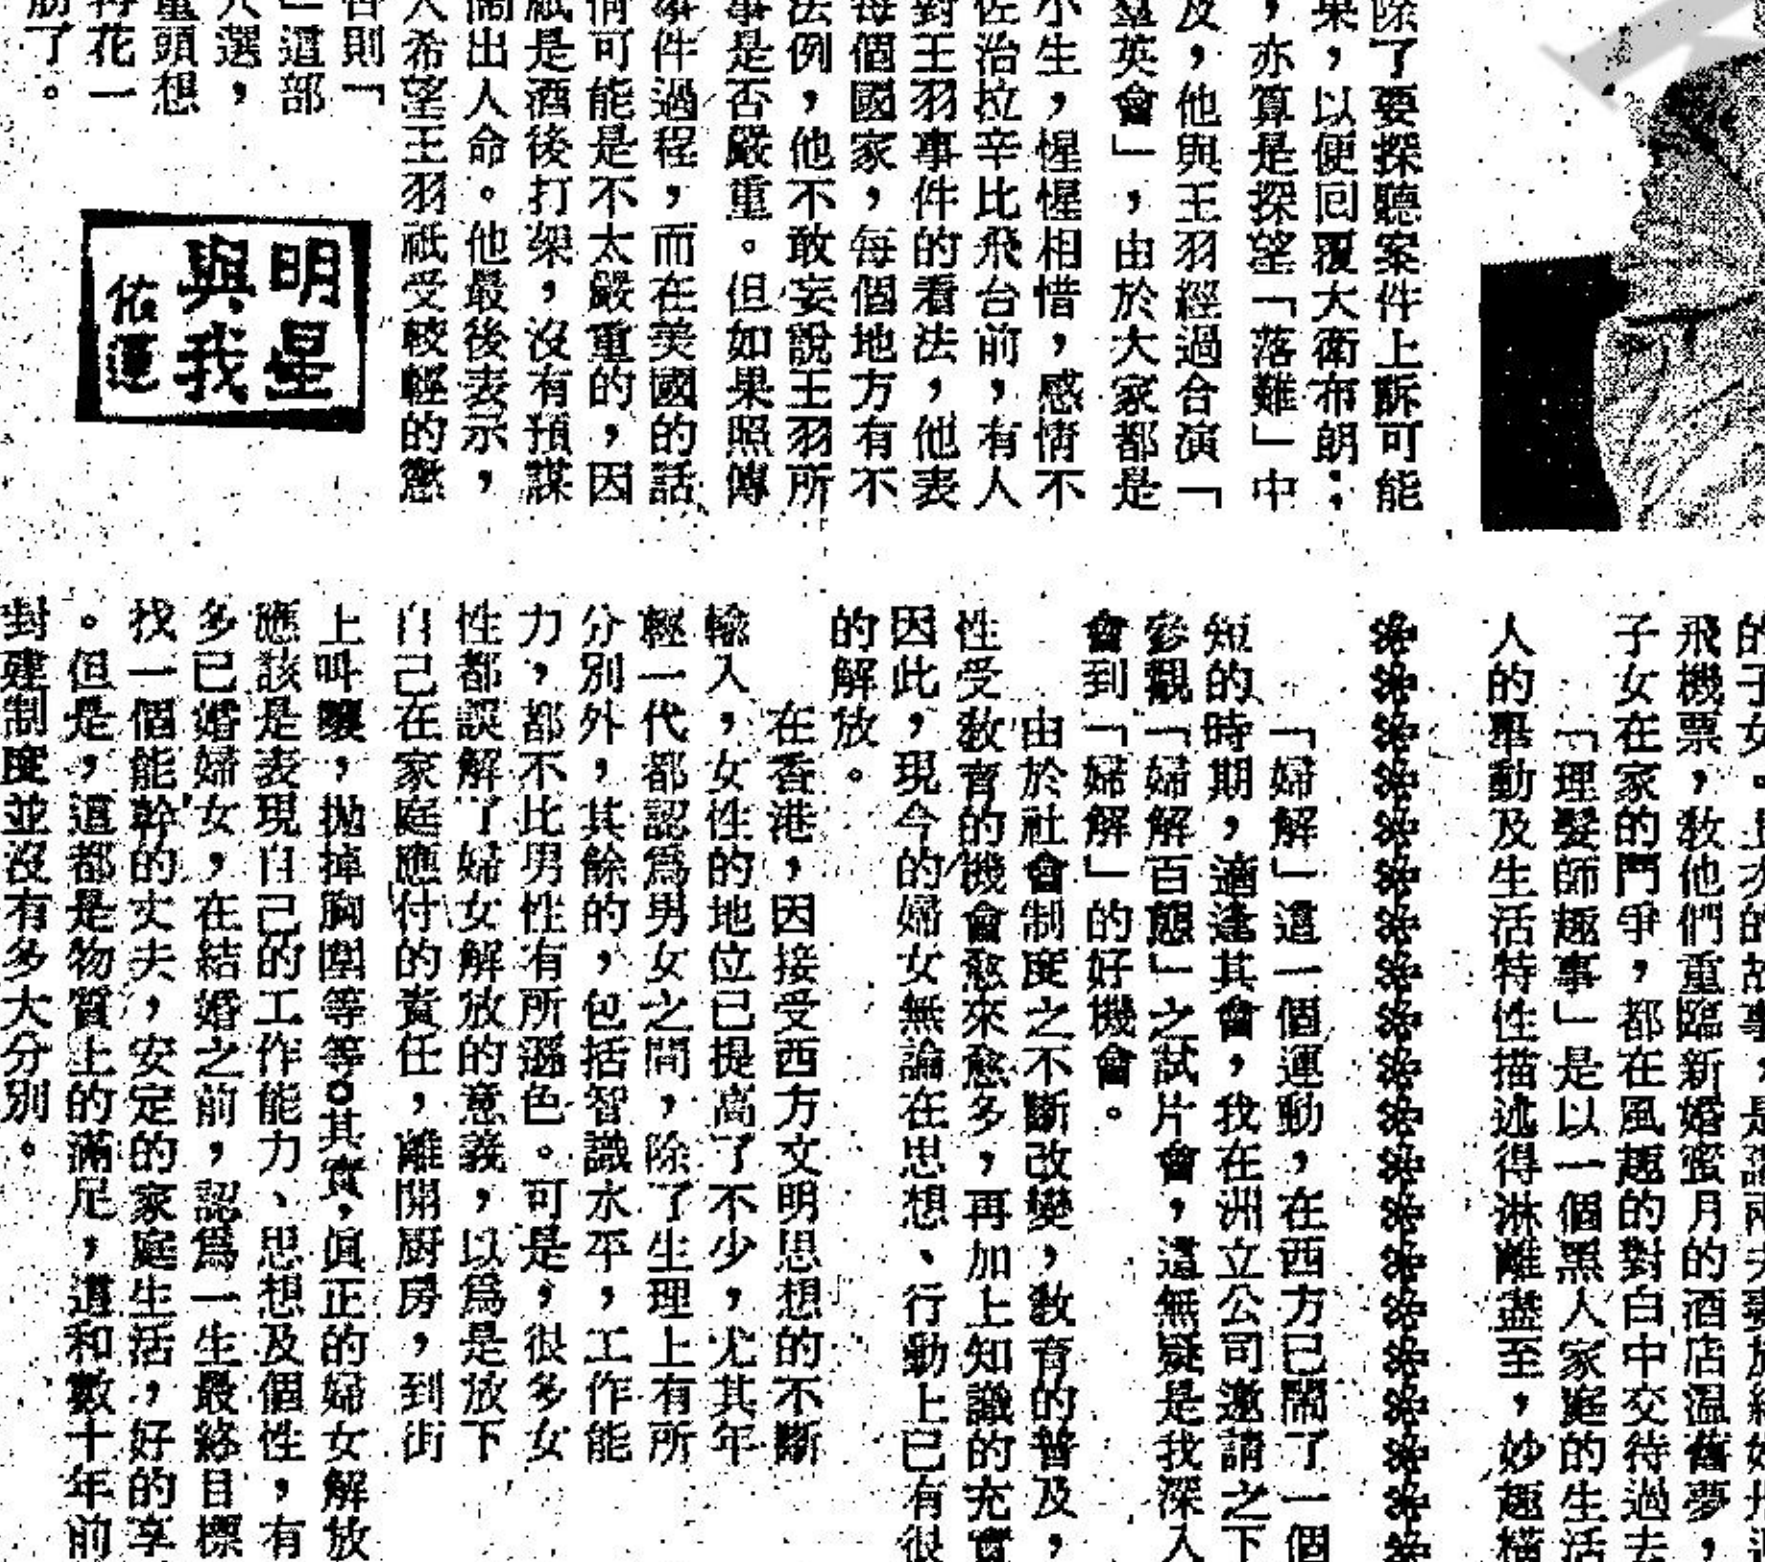 除了要探聽案件上訴可能
果,以便回覆大衛布朗;
,亦算是探望「落難」中
及,他與王羽經過合演「
羣英會」,由於大家都是
小生,惺惺相惜,感情不
佐治拉辛比飛台前,有人
對王羽事件的看法,他表
每個國家,每個地方有不
法例,他不敢妄說王羽所
事是否嚴重。但如果照傳
事件過程,而在美國的話
何可能是不太嚴重的,因
祇是酒後打架,沒有預謀
鬧出人命。他最後表示,
人希望王羽祇受較輕的懲
否則「
」這部
人選,
重頭想
再花一
筋了。
明星
與我
佑運
的子女。上亦的故事,是講兩夫妻
飛機票,教他們重臨新婚蜜月的酒店溫舊夢,
子女在家的鬥爭,都在風趣的對白中交待過去
「理髮師趣事」是以一個黑人家庭的生活
人的舉動及生活特性描述得淋離盡至,妙趣橫
「婦解」這一個運動,在西方已鬧了一個
短的時期,適逢其會,我在洲立公司邀請之下
參觀「婦解百態」之試片會,這無疑是我深入
會到「婦解」的好機會。
由於社會制度之不斷改變,教育的普及,
性受教育的機會愈來愈多,再加上知識的充實
因此,現今的婦女無論在思想、行動上已有很
的解放。
在香港,因接受西方文明思想的不斷
輸入,女性的地位已提高了不少,尤其年
輕一代都認爲男女之間,除了生理上有所
分別外,其餘的,包括智識水平,工作能
力,都不比男性有所遜色。可是,很多女
性都誤解了婦女解放的意義,以爲是放下
自己在家庭應付的責任,離開厨房,到街
上叫嚷,拋掉胸圍等等。其實,眞正的婦女解放
應該是表現自己的工作能力、思想及個性,有
多已婚婦女,在結婚之前,認爲一生最終目標
找一個能幹的丈夫,安定的家庭生活,好的享
。但是,這都是物質上的滿足,這和數十年前
封建制度並沒有多大分別。